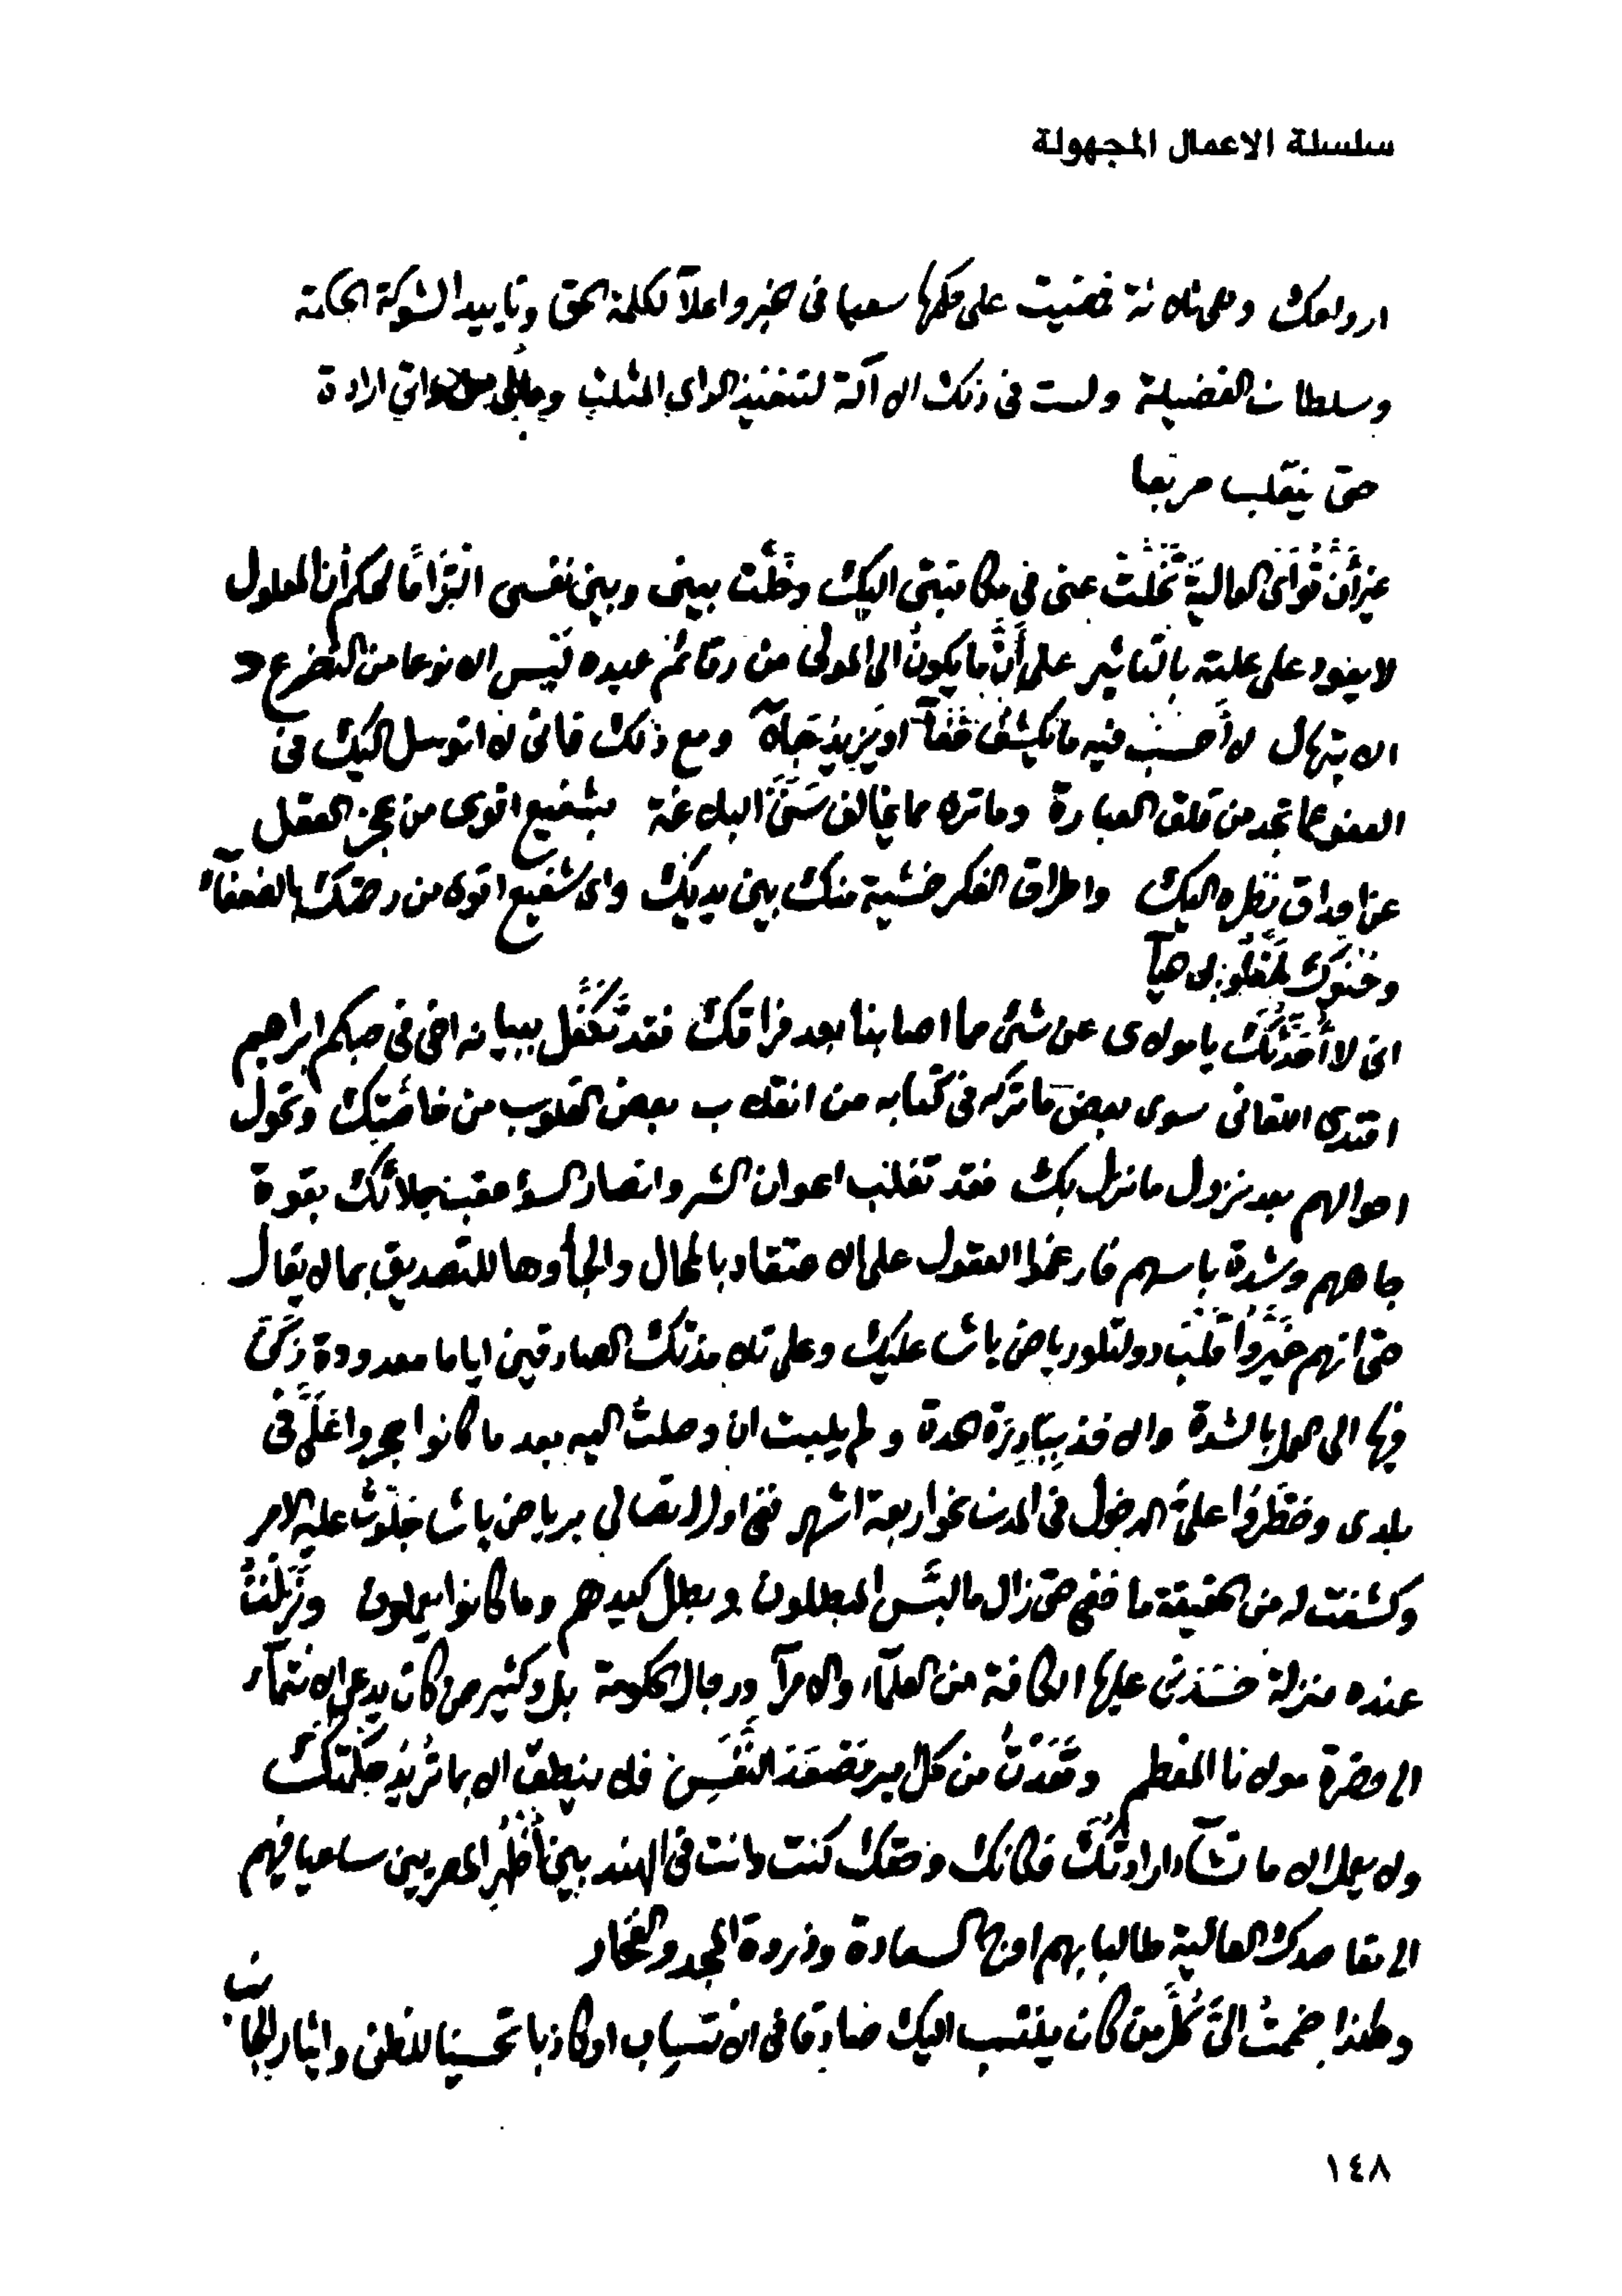 سلسلة الاعمال المجهولة
ارواحك وهى ثلاثة فمضيت على حكمها سعيا فى الخير واعلآ لكلمة الحق وتاييد الشوكة الحكمة
وسلطان الفضيلة ولست فى ذلك الا آلة لتنفيذ الراى المثلث ومالى من ذاتى ارادة
حتى ينقلب مربعا
غير أن قواى العالية تخلت عنى فى مكاتبتى اليك وخلت بينى وبين نفسى التزاما لحكم أن المعلول
لا يعود على علته بالتاثير على أن ما يكون الى المولى من رقائم عبيده ليس الا نوعا من التضرع و
الابتهال لا أحسب فيه ما يكشف خفآ او يزيد جلآ ومع ذلك فانى لا اتوسل اليك فى
العفو عما تجد من قلق العبارة وما تراه مما يخالف سنن البلاغة بشفيع اقوى من عجز العقل
عن احداق نظره اليك واطراق الفكر خشية منك بين يديك واى شفيع اقوى من رحمتك بالضعفآء
وحنوك لمغلوبى حيآ
انى لا أحدثك يا مولاى عن شئ مما اصابنا بعد فراقك فقد تكفل ببيانه اخى فى حبكم ابراهيم
افندى اللقانى سوى بعض ما تركه فى كتابه من انقلاب بعض القلوب من خاصتك وتحول
احوالهم بعد نزول ما نزل بك فقد تغلب اعوان الشر وانصار السؤ عقب جلائك بقوة
جاههم وشدة باسهم فارغموا العقول على الاعتقاد بالمحال والجأوها للتصديق بما لا يقال
حتى انهم غيروا قلب دولتلو رياض باشا عليك وعلى تلامذتك الصادقين اياما معدودة ركن
فيها الى العمل بالشدة والاخذ ببادرة الحدة ولم يلبث ان وصلت اليه بعد ما كانوا حجروا على فى
بلدى وحظروا على الدخول فى المدن نحو اربعة اشهر ففى اول اتصالى برياض باشا جلوت عليه الامر
وكشفت له من الحقيقة ما خفى حتى زال ما لبس المبطلون وبطل كيدهم وما كانوا يعملون ونزلت
عنده منزلة حسدنى عليها الكافة من العلمآء والامرآ ورجال الحكومة بل وكثير من كان يدعى الانتمآء
الى حضرة مولانا المعظم وقعدت من كل مصعد النفس فلا ينطق الا بما تريد حكمتك
ولا يعمل الا ما تشآء ارادتك فكانك وحقك كنت وانت فى الهند بين أظهر المصريين ساعيا فيهم
الى مقاصدك العالية طالبا بهم اوج السعادة وذروة المجد والفخار
وهكذا ضممت الى كل من كان ينتسب اليك صادقا فى الانتساب او كاذبا تحسينا للظن وايثار الجانب
١٤٨